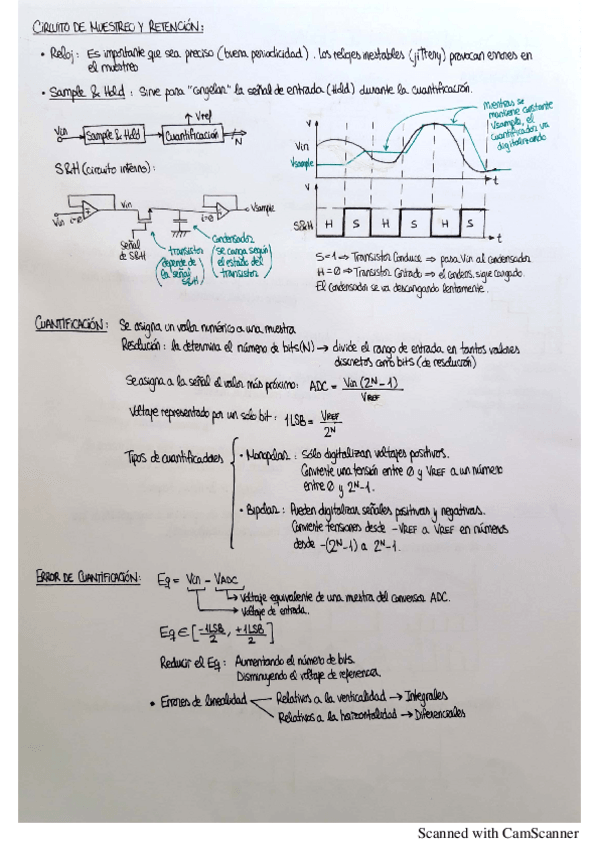 CIRCUITO DE MUESTREO Y RETENCIÓN:
• Reloj: Es importante que sea preciso (buena periodicidad). Los relojes inestables (jitteny) provocan errores en
el muestreo
• Sample & Hold: Sirve para "congelar" la señal de entrada (Hold) durante la cuantificación.
Vref
Vin Sample & Hold Cuantificación N
S&H (circuito interno):
Vin i=0 Vin i=0 Vsample
Señal
de S&H
transistor
(depende de
la señal
S&H)
Condensador
(se carga según
el estado del
transistor)
Mientras se
mantiene constante
Vsample, el
cuantificador va
digitalizando
V
Vin
Vsample
t
V
S&H H S H S H S
t
S=1 ⇒ Transistor Conduce ⇒ pasa Vin al condensador
H=0 ⇒ Transistor Cortado ⇒ el condens. sigue cargado.
El condensador se va descargando lentamente.
CUANTIFICACIÓN: Se asigna un valor numérico a una muestra
Resolución: la determina el número de bits (N) → divide el rango de entrada en tantos valores
discretos como bits (de resolución)
Se asigna a la señal el valor más próximo: ADC = Vin (2^N - 1) / VREF
Voltaje representado por un sólo bit: 1 LSB = VREF / 2^N
Tipos de cuantificadores
• Monopolar: Sólo digitalizan voltajes positivos.
Convierte una tensión entre 0 y VREF a un número
entre 0 y 2^N-1.
• Bipolar: Pueden digitalizar señales positivas y negativas.
Convierte tensiones desde -VREF a VREF en números
desde -(2^N-1) a 2^N-1.
ERROR DE CUANTIFICACIÓN: Eq = Vin - VADC
Voltaje equivalente de una muestra del conversor ADC.
Voltaje de entrada.
Eq ∈ [-1LSB/2, +1LSB/2]
Reducir el Eq: Aumentando el número de bits.
Disminuyendo el voltaje de referencia.
• Errores de linealidad
Relativos a la verticalidad → Integrales
Relativos a la horizontalidad → Diferenciales
Scanned with CamScanner